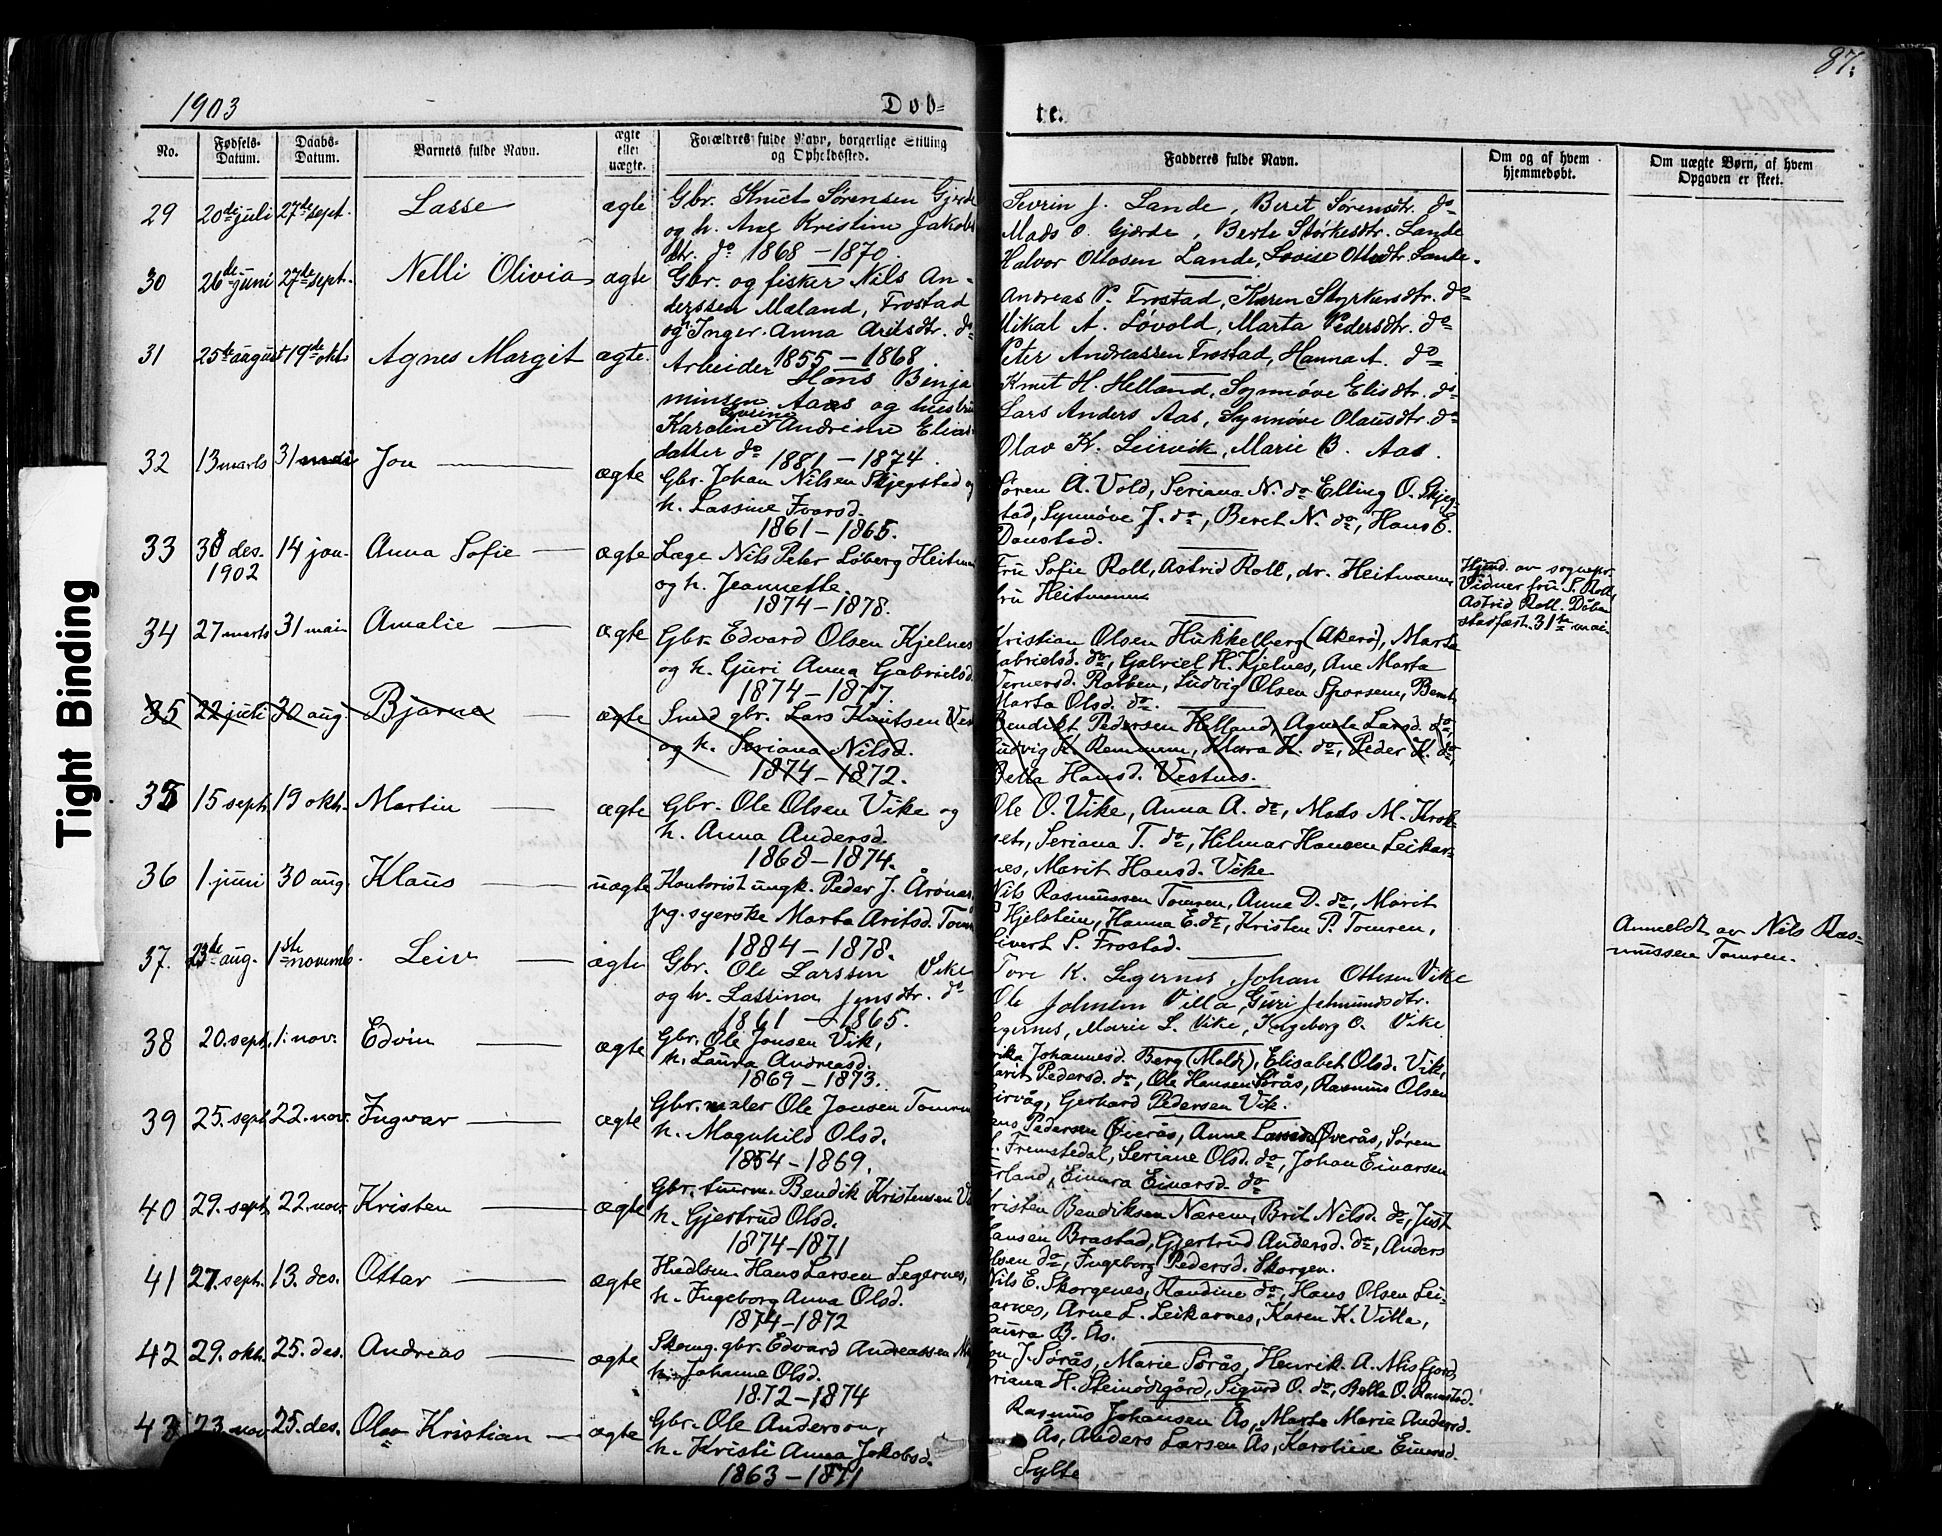 87.
1903
Døb-
te.
No.
Fødsels-
Datum.
Daabs-
Datum.
Barnets fulde Navn.
ægte
eller
uægte.
Forældres fulde Navn, borgerlige Stilling
og Opholdssted.
Fadderes fulde Navn.
Om og af hvem
hjemmedøbt.
Om uægte Børn, af hvem
Opgaven er skeet.
29 20de juli 27de sept. Lasse ægte
Gbr. Knut Sørensen Gjerde
og h. Ane Kristine Jakobs
dtr. do 1868 - 1870.
Sevrin J. Lande, Beret Sørensdtr. do
Mads O. Gjærde, Berte Størkesdtr. Lande
Halvor Ottosen Lande, Lovise Ottodtr. Lande.
30 26de juni 27de sept. Nelli Olivia ægte
Gbr. og fisker Nils An-
derssen Maland, Frostad
og Inger Anna Aritsdtr. do
1855 - 1868
Andreas P. Frostad, Karen Styrkersdtr. do
Mikal A. Løvold, Marta Pedersdtr. do
Peter Andreassen Frostad, Hanna A. do
31 25de august 19de okt. Agnes Margit ægte.
Arbeider Hans Binja
minsen Aas og hustru
Karoline Andrine Elias-
datter do 1881 - 1874
Knut H. Helland, Synnøve Elisdtr. do
Lars Anders Aas, Synnøve Olausdtr. do
Olav K. Leirvik, Marie B. Aas.
32 13 marts 31 mai Jon ægte
Gbr. Johan Nilsen Skjegstad og
h. Lassine Ivarsd.
1861 - 1865.
Søren A. Vold, Seriana N. do Elling O. Skjeg-
stad, Synnøve J. do, Beret N. do, Hans E.
Daustad.
33 30 des. 14 jan. Anna Sofie ægte
1902
Læge Nils Peter Løberg Heitmann
og h. Jeannette.
1874 - 1878.
Fru Sofie Roll, Astrid Roll, dr. Heitmann
fru Heitmann
Hjmd. av sognepr.
Vidner fru S. Roll,
Astrid Roll. Dåben
stadfæst. 31te mai.
34 27 marts 31 mai Amalie ægte
Gbr. Edvard Olsen Kjelnes
og h. Guri Anna Gabrielsd.
1874 - 1877.
Kristian Olsen Hukkelberg (Akerø), Marta
Gabrielsd. do, Gabriel H. Kjelnes, Ane Marta
Vernersd. Rotben, Ludvig Olsen Sporsem, Bernt
Marta Olsd. do.
35 22 juli 30 aug. Bjarne ægte
Smed gbr. Lars Knutsen Ves
og h. Seriana Nilsd.
1874 - 1872.
Bendikt Pedersen Helland, Agnete Larsd. do
Ludvig K. Remmem, Klara K. do, Peder K. do,
Hansd. Vestnes.
35 15 sept. 19 okt. Martin ægte
Gbr. Ole Olsen Vike og
h. Anna Andersd.
1868 - 1874.
Ole O. Vike, Anna A. do, Mads M. Krok-
setr, Seriana T. do, Hilmar Hansen Leikar-
nes, Marit Hansd. Vike
36 1. juni 30 aug. Klaus uægte
Kontorist ungk. Peder J. Årønes,
pg. syerske Marta Aritsd. Tomr
1884 - 1878.
Nils Rasmussen Tomren, Anne D. do, Marit
Hjelstein, Hanna E. do, Kristen P. Tomren,
Sivert S. Frostad.
Anmeldt av Nils Ras-
mussen Tomren.
37. 23de aug. 1ste novemb. Leiv ægte
Gbr. Ole Larssen Vike
og h. Lassina Jensdtr. do
1861 - 1865.
Tore K. Legernes Johan Ottesen Vike
Ole Johnsen Villa, Guri Jetmundsdtr.
Legernes, Marie L. Vike, Ingeborg O. Vike
38 20. sept. 1. nov. Edvin ægte
Gbr. Ole Jonsen Vik,
h. Laura Andreasd.
1869 - 1873.
Johannesd. Berg (Molde), Elisabet Olsd. Vik,
Marit Pedersd. do, Ole Hansen Sørås, Rasmus Olsen
Leirvåg, Gerhard Pedersen Vik.
39 25. sept. 22. nov. Ingvar ægte
Gbr. maler Ole Jonsen Tomren
h. Magnhild Olsd.
1864 - 1869.
Jens Pedersen Øverås, Anne Larsd. Øverås, Søren
Fremstedal, Seriane Olsd. do, Johan Einarsen
Erland, Einara Einarsd. do
40 29. sept. 22. nov. Kristen ægte
Gbr. tømrm. Bendik Kristensen
h. Gjertrud Olsd.
1874-1871
Kristen Bendiksen Nærem, Brit Nilsd. do, Just
Hansen Brastad, Gjertrud Andersd. do, Anders
Olsen do, Ingeborg Pedersd. Skorgen.
41 27. sept. 13. des. Ottar ægte
Handlsm. Hans Larsen Legernes,
h. Ingeborg Anna Olsd.
1874-1872
Nils E. Skorgenes, Randine do, Hans Olsen Lei-
karnes, Arne L. Leikarnes, Karen K. Villa,
Laura B. Ås.
42 29. okt. 25. des. Andreas ægte
Skomg. gbr. Edvard Andreassen
h. Johanne Olsd.
1872 - 1874
Jon J. Sørås, Marie Sørås, Henrik A. Misfjord,
Seriana H. Steinødegård, Sigurd O. do, Bella O. Ramstad.
43 23. nov. 25. des. Olav Kristian ægte
Gbr. Ole Anderson,
h. Kristi Anna Jakobsd.
1863 - 1871
Rasmus Johansen Ås, Marta Marie Andersd.
Ås, Anders Larsen Ås, Karoline Einarsd.
Sylte
Tight Binding